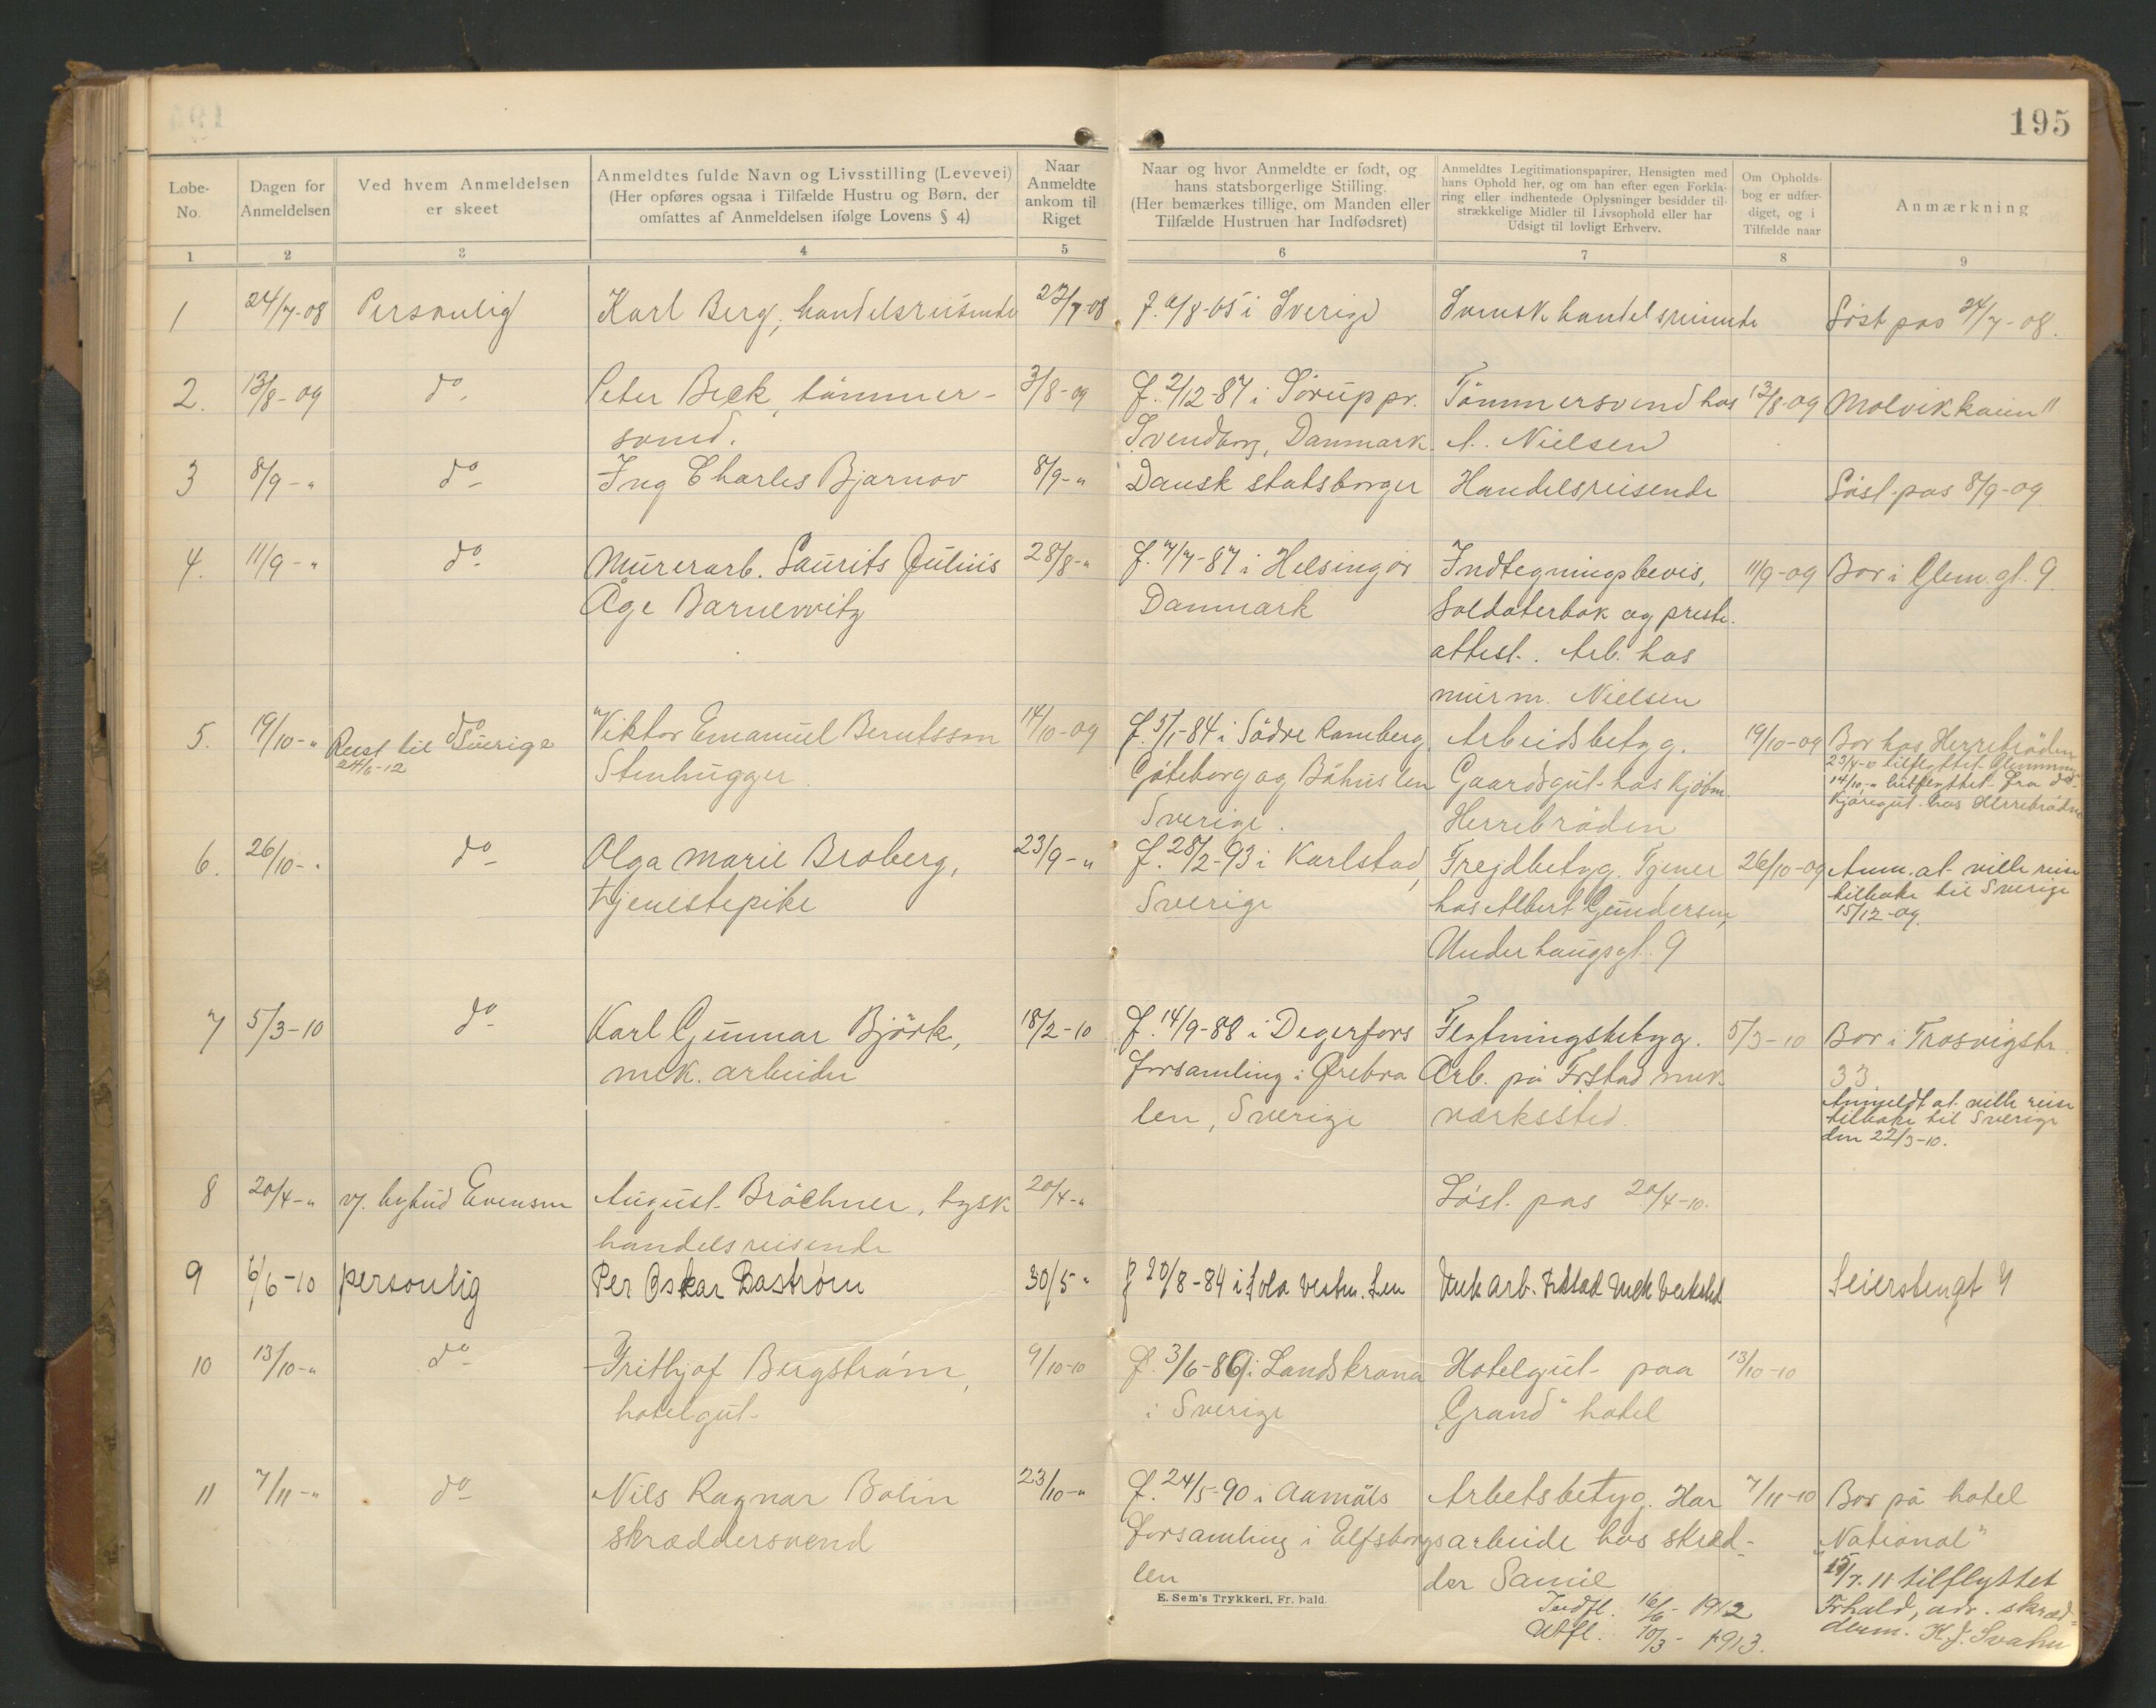 195
Løbe-No.
Dagen for Anmeldelsen
Ved hvem Anmeldelsen er skeet
Anmeldtes fulde Navn og Livsstilling (Levevei)
(Her opføres ogsaa i Tilfælde Hustru og Børn, der
omfattes af Anmeldelsen ifølge Lovens § 4)
Naar Anmeldte ankom til Riget
Naar og hvor Anmeldte er født, og
hans statsborgerlige Stilling.
(Her bemærkes tillige, om Manden eller
Tilfælde Hustruen har Indfødsret)
Anmeldtes Legitimationspapirer, Hensigten med
hans Ophold her, og om han efter egen Forkla-
ring eller indhentede Oplysninger besidder til-
strækkelige Midler til Livsophold eller har
Udsigt til lovligt Erhverv.
Om Opholds-
bog er udfær-
diget, og i
Tilfælde naar
Anmærkning
1 2 3 4 5 6 7 8 9
1 24/7-08 Personlig Karl Berg, handelsreisende 23/7-08 f. 6/8-65 i Sverige Svensk handelsreisende Löst pas 24/7-08.
2. 13/8-09 do. Peter Beck, tömmer- 3/8-09 f. 2/12-87 i Sörup pr. Tömmersvend hos 13/8-09 Molvikkaien"
svend. Svendborg, Danmark. A. Nielsen
3 8/9-" do- Ing Charles Bjarnov 8/9-" Dansk statsborger Handelsreisende Löst. pas 8/9-09
4. 11/9-" do- Murerarb. Laurits Julius 28/8-" f. 7/7-87 i Helsingör Indtegningsbevis, 11/9-09 Bor i Glem. gt. 9.
Åge Barnewitz Danmark Soldaterbok og preste-
attest. Arb. hos
murm. Nielsen
5. 19/10-" do Viktor Emanuel Berntsson 14/10-09 f. 5/1-84 i Södre Ramberg, Arbeidsbetyg. 19/10-09 Bor hos Herrebröden
Reist til Sverige
24/6-12
Stenhugger. Göteborg og Bohus len Gaardsgut hos kjöbm. tilflyttet Glemminge
14/10-" utflyttet fra do-
Sverige. Herrebröden Kjöregut hos Herrebröden
6. 26/10-" do- Olga Marie Broberg, 23/9-" f. 28/2-93 i Karlstad, Frejdbetyg. Tjener 26/10-09 Anm. at ville reise
tjenestepike Sverige hos Albert Gundersen, tilbake til Sverige
15/12-09.
Underhaugsgt. 9
7 5/3-10 do- Karl Gunnar Björk, 18/2-10 f. 14/9-88 i Degerfors Flytningsbetyg. 5/3-10 Bor i Trosvigstr.
mek. arbeider forsamling i Ørebro Arb. på Fr.stad mek. 33.
len, Sverige værksted. Anmeldt at ville reise
tilbake til Sverige
den 22/3-10.
8 20/4-" v. bybud Evensen August Bröchner, tysk 20/4-" Löst. pas 20/4-10.
handelsreisende
9 6/6-10 personlig Per Oskar Bastrøm 30/5-" f 20/8-84 i Sola Vestm. Len Mek arb. Frstad Mek Verksted Seierstengt 4
10 13/10-" do- Frithjof Bergström, 9/10-10 f. 3/6-86 i Landskrona Hotelgut paa 13/10-10
hotelgut- i Sverige „Grand" hotel
11 7/11-" do- Nils Ragnar Bolin 23/10-" f. 24/5-90 i Aamåls Arbetsbetyg. Har 7/11-10 Bor på hotel
skræddersvend forsamling i Elfsborgs arbeide hos skræd- „National"
len der Samie 15/7.11 tilflyttet
Indfl. 16/6-1912 Frhald, adr. skræd-
Utfl. 10/3-1913. derm. K. J. Svahn
E. Sem's Trykkeri, Fr.hald.